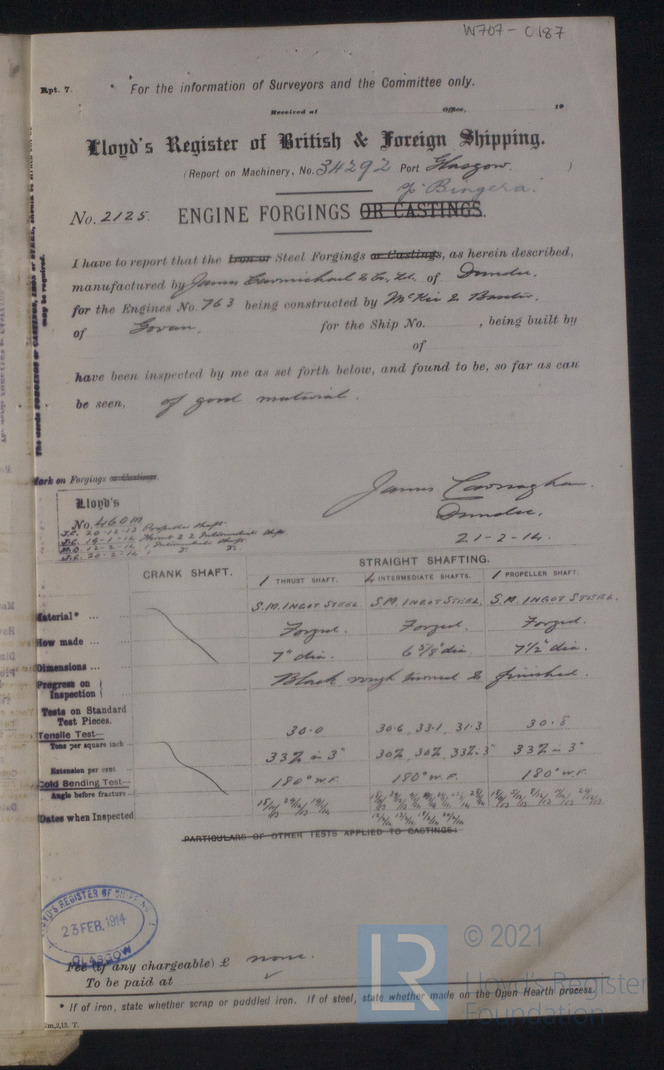 W707-0187
Rpt. 7.
* For the information of Surveyors and the Committee only.
Received at Office, 19
Lloyd's Register of British & Foreign Shipping.
(Report on Machinery, No. 34292 Port Glasgow. )
Bingera.
No. 2125. ENGINE FORGINGS OR CASTINGS.
I have to report that the Iron or Steel Forgings or Castings, as herein described,
manufactured by James Carmichael & Co. Ld. of Dundee.
for the Engines No. 763 being constructed by McKie & Baxter.
of Govan. for the Ship No. , being built by
of
have been inspected by me as set forth below, and found to be, so far as can
be seen, of good material.
may be required.
Mark on Forgings or Castings.
James Carnaghan.
Dundee.
21-2-14.
Lloyd's
No. 460M
J.C. 20-12-13 Propeller Shaft
J.C. 12-2-14 1 Intermediate Shaft
J.C. 20-2-14
STRAIGHT SHAFTING.
CRANK SHAFT. 1 THRUST SHAFT. 4 INTERMEDIATE SHAFTS. 1 PROPELLER SHAFT.
Material* ... S.M. INGOT STEEL. S.M. INGOT STEEL. S.M. INGOT STEEL.
How made ... Forged. Forged. Forged.
Dimensions ... 7" dia. 6 5/8" dia 7 1/2" dia.
Progress on Inspection Black rough turned & finished.
Tests on Standard
Test Pieces.
Tensile Test—
Tons per square inch 30.0 30.6, 33.1, 31.3 30.8
Extension per cent 33% in 3" 30%, 30%, 33% 3" 33% in 3"
Cold Bending Test—
Angle before fracture 180° W.F. 180° W.F. 180° W.F.
Dates when Inspected
PARTICULARS OF OTHER TESTS APPLIED TO CASTINGS:
LLOYD'S REGISTER OF SHIPPING
23 FEB. 1914
GLASGOW
Fee (if any chargeable) £ none.
To be paid at
* If of iron, state whether scrap or puddled iron. If of steel, state whether made on the Open Hearth process.
2m,2,13. T.
LR
© 2021
Lloyd's Register
Foundation